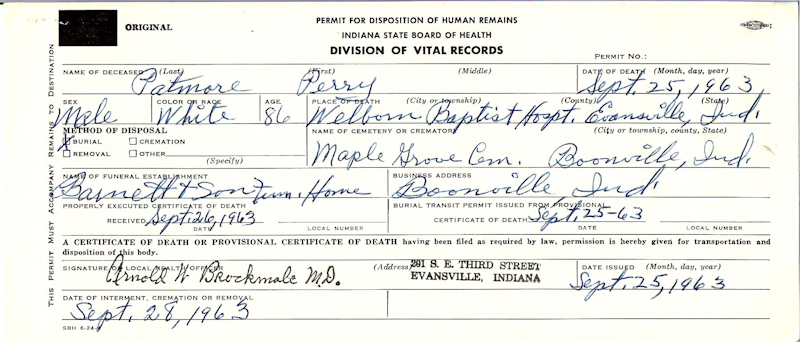 ORIGINAL
PERMIT FOR DISPOSITION OF HUMAN REMAINS
INDIANA STATE BOARD OF HEALTH
DIVISION OF VITAL RECORDS
PERMIT NO.:
THIS PERMIT MUST ACCOMPANY REMAINS TO DESTINATION
NAME OF DECEASED (Last) (First) (Middle) DATE OF DEATH (Month, day, year)
Patmore Perry Sept. 25, 1963
SEX COLOR OR RACE AGE PLACE OF DEATH (City or township) (County) (State)
Male White 86 Welborn Baptist Hospt. Evansville, Ind.
METHOD OF DISPOSAL NAME OF CEMETERY OR CREMATORY (City or township, county, State)
X BURIAL CREMATION
REMOVAL OTHER (Specify)
Maple Grove Cem. Boonville, Ind.
NAME OF FUNERAL ESTABLISHMENT BUSINESS ADDRESS
Barnett & Son Fun. Home Boonville, Ind.
PROPERLY EXECUTED CERTIFICATE OF DEATH BURIAL TRANSIT PERMIT ISSUED FROM PROVISIONAL
RECEIVED Sept. 26, 1963 CERTIFICATE OF DEATH Sept. 25-63
DATE LOCAL NUMBER DATE LOCAL NUMBER
A CERTIFICATE OF DEATH OR PROVISIONAL CERTIFICATE OF DEATH having been filed as required by law, permission is hereby given for transportation and
disposition of this body.
SIGNATURE OF LOCAL HEALTH OFFICER (Address) 201 S. E. THIRD STREET DATE ISSUED (Month, day, year)
Arnold W Brockmole M.D. EVANSVILLE, INDIANA Sept. 25, 1963
DATE OF INTERMENT, CREMATION OR REMOVAL
Sept. 28, 1963
SBH 6-24-